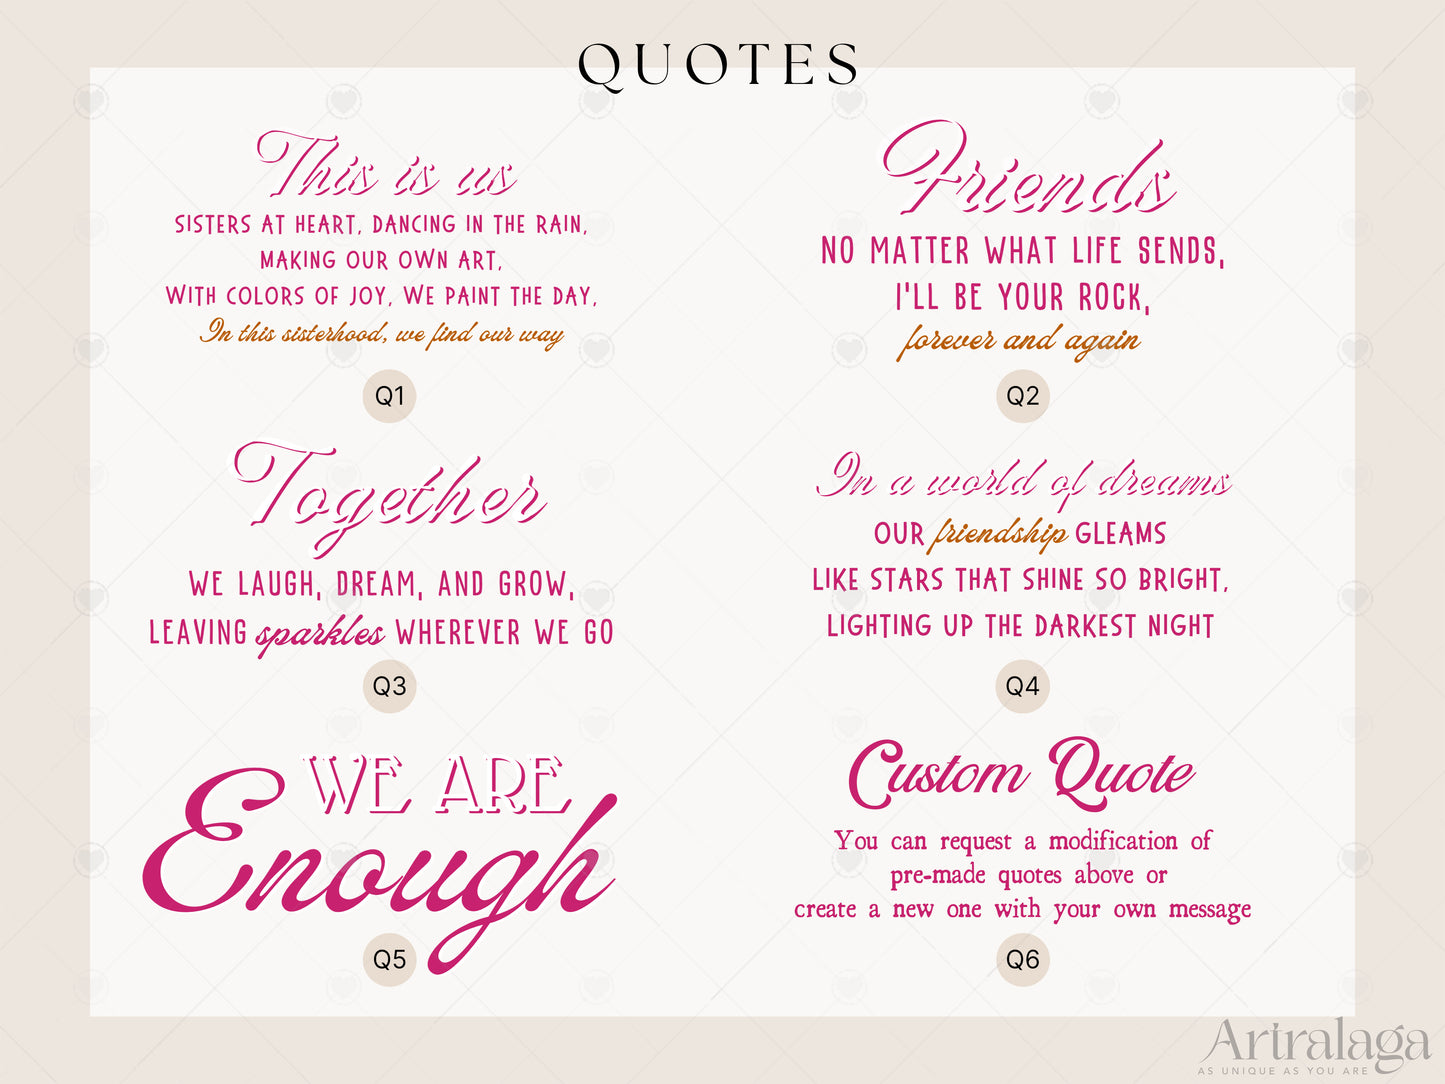 QUOTES
This is us
SISTERS AT HEART, DANCING IN THE RAIN,
MAKING OUR OWN ART,
WITH COLORS OF JOY, WE PAINT THE DAY,
In this sisterhood, we find our way
Q1
Friends
NO MATTER WHAT LIFE SENDS,
I'LL BE YOUR ROCK,
forever and again
Q2
Together
WE LAUGH, DREAM, AND GROW,
LEAVING sparkles WHEREVER WE GO
Q3
In a world of dreams
OUR friendship GLEAMS
LIKE STARS THAT SHINE SO BRIGHT,
LIGHTING UP THE DARKEST NIGHT
Q4
WE ARE
Enough
Q5
Custom Quote
You can request a modification of
pre-made quotes above or
create a new one with your own message
Q6
Artralaga
AS UNIQUE AS YOU ARE